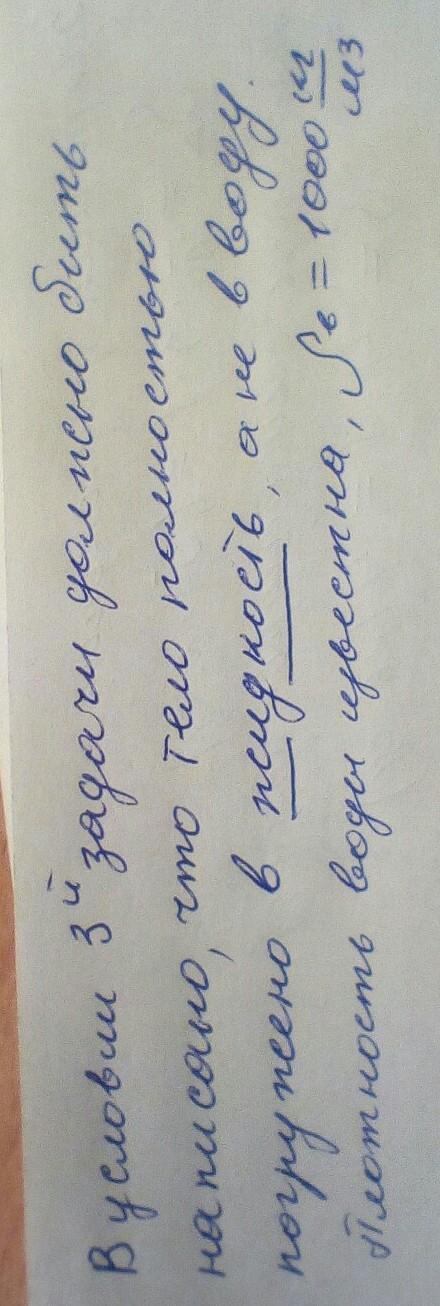 В условии 3й задачи должно быть
написано, что тело полностью
погружено в жидкость, а не в воду.
Плотность воды известна, ρв = 1000 кг/м3